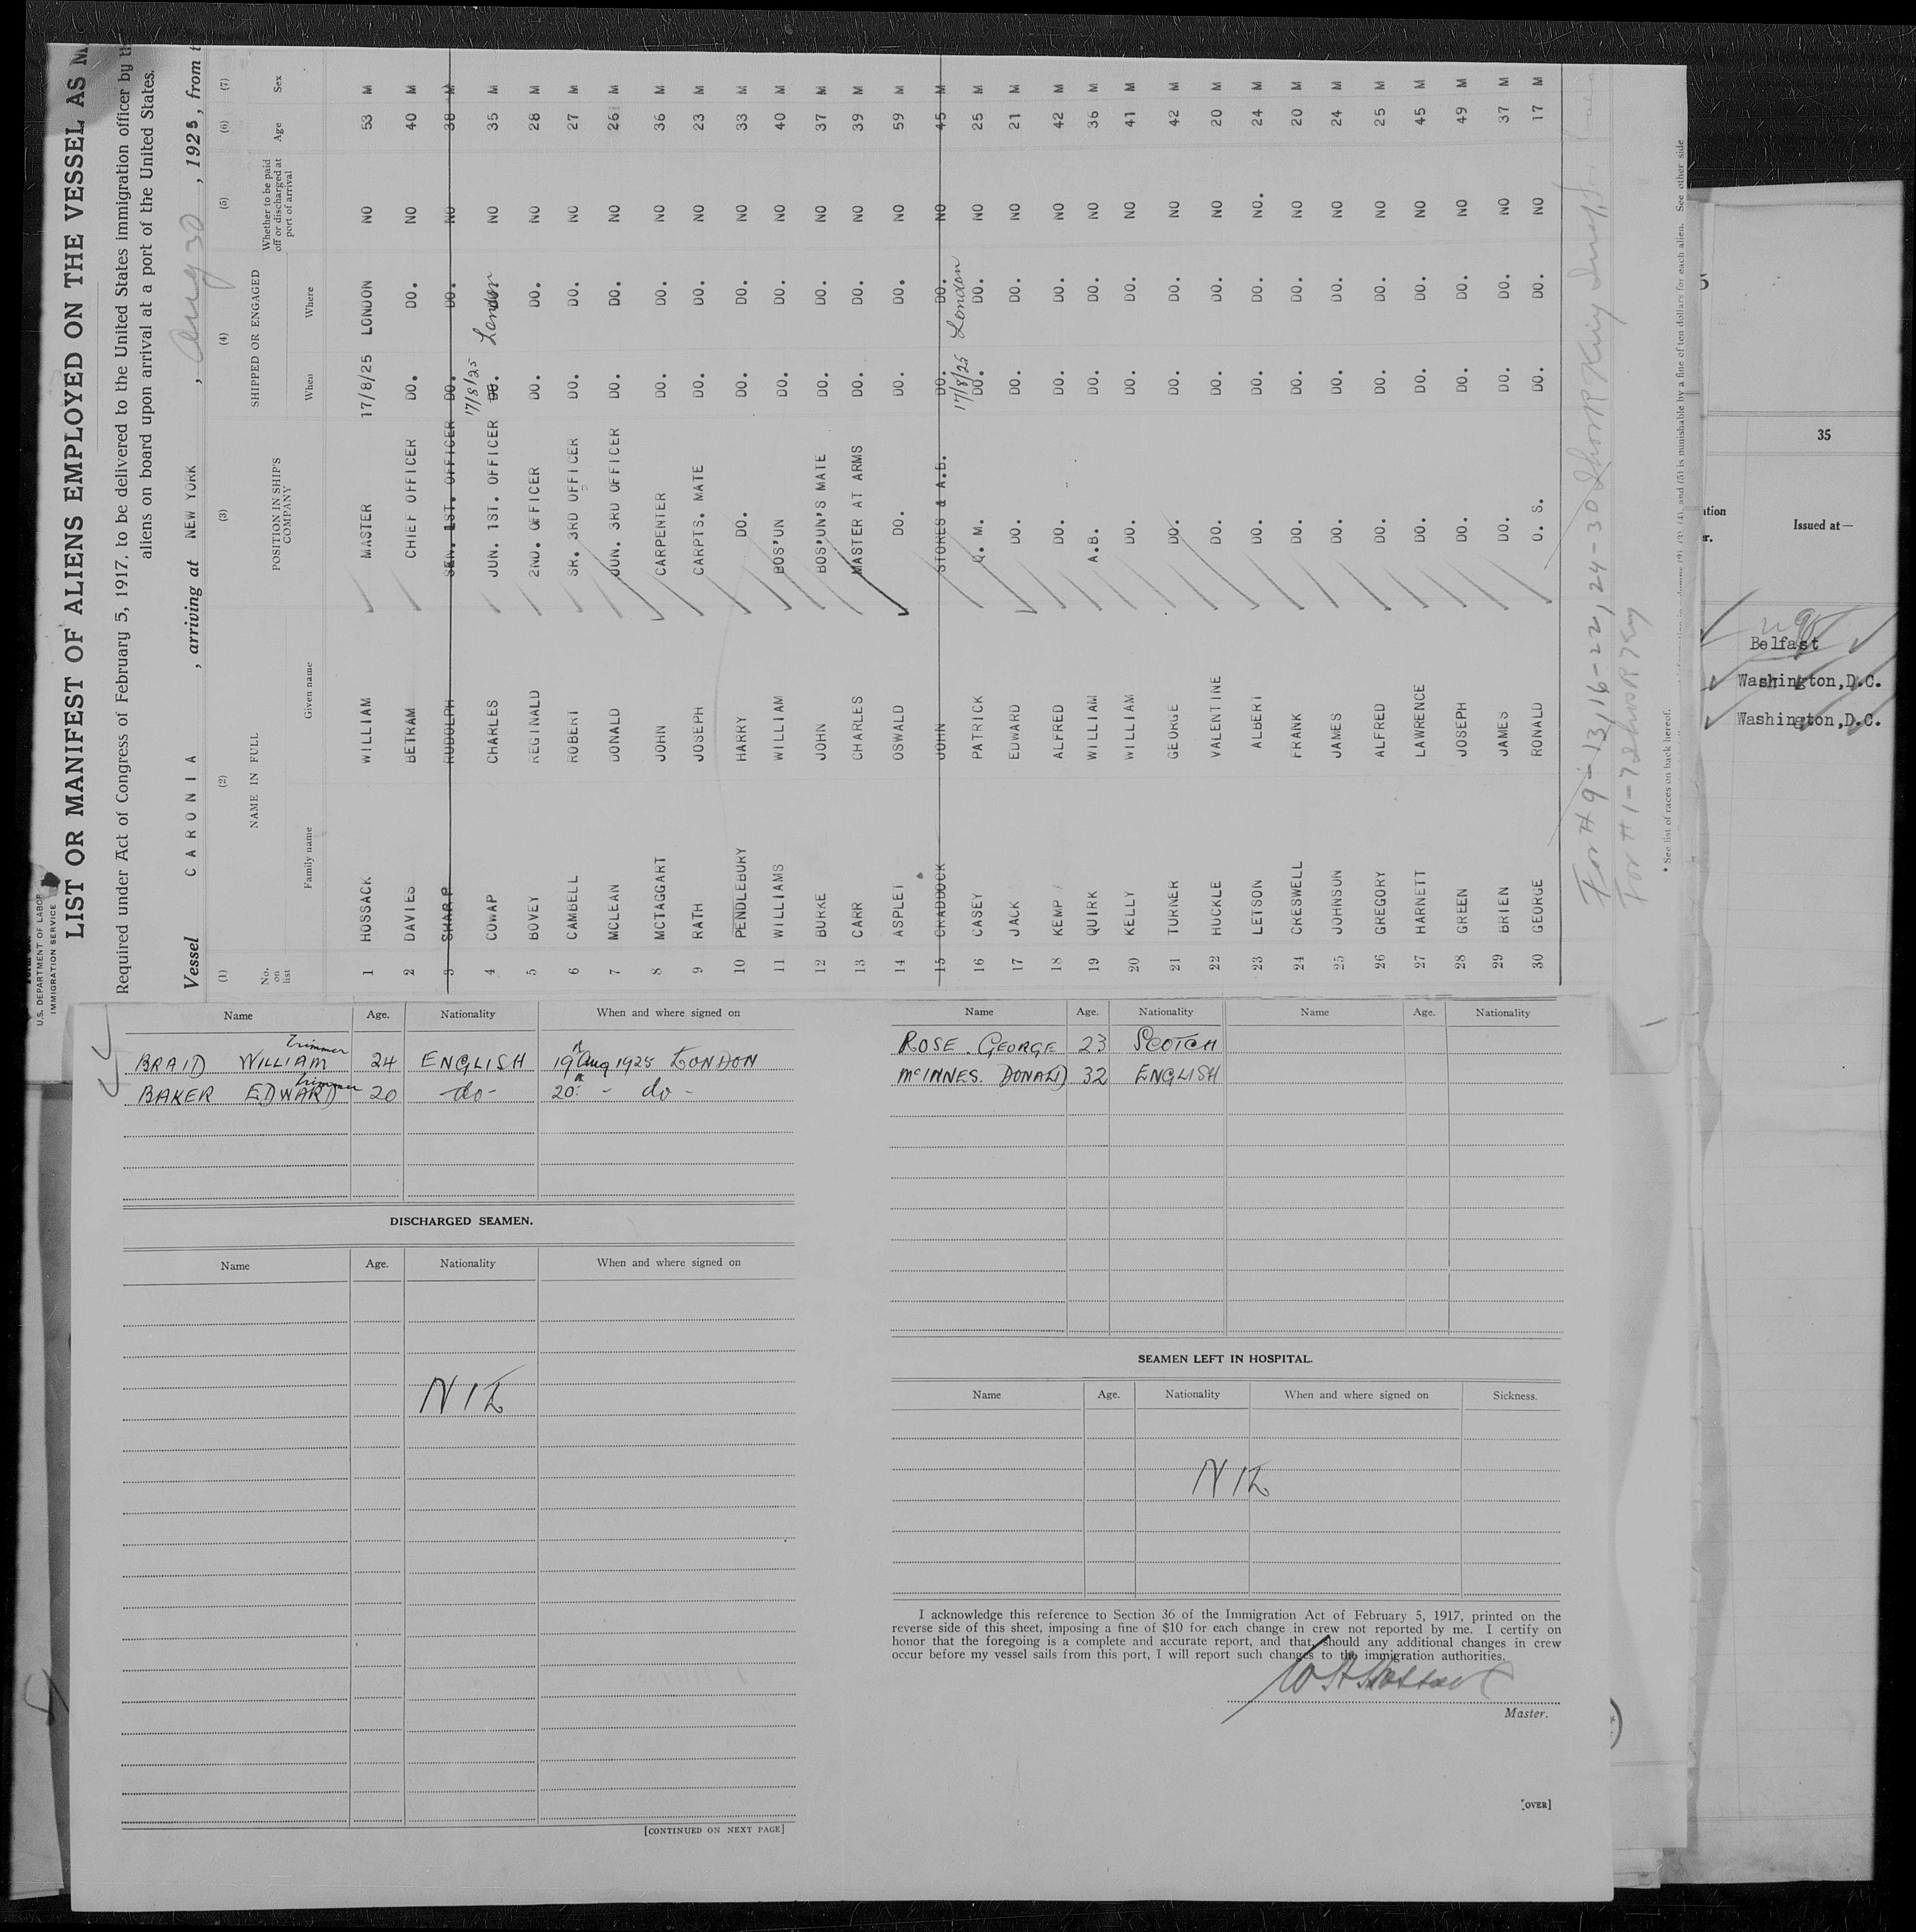 U.S. DEPARTMENT OF LABOR
IMMIGRATION SERVICE
LIST OR MANIFEST OF ALIENS EMPLOYED ON THE VESSEL AS
Required under Act of Congress of February 5, 1917, to be delivered to the United States immigration officer by
aliens on board upon arrival at a port of the United States.
Vessel CARONIA , arriving at NEW YORK , Aug 30 , 1925, from
(1) (2) (3) (4) (5) (6) (7)
No. on list NAME IN FULL Family name Given name POSITION IN SHIP'S COMPANY SHIPPED OR ENGAGED When Where Whether to be paid off or discharged at port of arrival Age Sex
1 HOSSACK WILLIAM MASTER 17/8/25 LONDON NO 53 M
2 DAVIES BETRAM CHIEF OFFICER DO. DO. NO 40 M
3 SHARP RUDOLPH SEN. 1ST. OFFICER DO. DO. NO 38 M
4 COWAP CHARLES JUN. 1ST. OFFICER 17/8/25 DO. London NO 35 M
5 BOVEY REGINALD 2ND. OFFICER DO. DO. NO 28 M
6 CAMBELL ROBERT SR. 3RD OFFICER DO. DO. NO 27 M
7 MCLEAN DONALD JUN. 3RD OFFICER DO. DO. NO 26 M
8 MCTAGGART JOHN CARPENTER DO. DO. NO 36 M
9 RATH JOSEPH CARPTS. MATE DO. DO. NO 23 M
10 PENDLEBURY HARRY DO. DO. DO. NO 33 M
11 WILLIAMS WILLIAM BOS'UN DO. DO. NO 40 M
12 BURKE JOHN BOS'UN'S MATE DO. DO. NO 37 M
13 CARR CHARLES MASTER AT ARMS DO. DO. NO 39 M
14 ASPLET OSWALD DO. DO. DO. NO 59 M
15 CRADDOCK JOHN STORES & A.B. DO. DO. NO 45 M
16 CASEY PATRICK Q. M. 17/8/25 DO. London DO. NO 25 M
17 JACK EDWARD DO. DO. DO. NO 21 M
18 KEMP ALFRED DO. DO. DO. NO 42 M
19 QUIRK WILLIAM A.B. DO. DO. NO 36 M
20 KELLY WILLIAM DO. DO. DO. NO 41 M
21 TURNER GEORGE DO. DO. DO. NO 42 M
22 HUCKLE VALENTINE DO. DO. DO. NO 20 M
23 LETSON ALBERT DO. DO. DO. NO. 24 M
24 CRESWELL FRANK DO. DO. DO. NO 20 M
25 JOHNSON JAMES DO. DO. DO. NO 24 M
26 GREGORY ALFRED DO. DO. DO. NO 25 M
27 HARNETT LAWRENCE DO. DO. DO. NO 45 M
28 GREEN JOSEPH DO. DO. DO. NO 49 M
29 BRIEN JAMES DO. DO. DO. NO 37 M
30 GEORGE RONALD O. S. DO. DO. NO 17 M
For # 9-13, 16-22, 24-30
For # 1-7
* See list of races on back hereof.
is punishable by a fine of ten dollars for each alien. See other side
35
Issued at—
Belfast
Washington,D.C.
Washington,D.C.
Name Age. Nationality When and where signed on
Trimmer
BRAID WILLIAM 24 ENGLISH 19th Aug 1925 LONDON
Trimmer
BAKER EDWARD 20 -do- 20th - do -
DISCHARGED SEAMEN.
Name Age. Nationality When and where signed on
NIL
[CONTINUED ON NEXT PAGE]
Name Age. Nationality Name Age. Nationality
ROSE. GEORGE 23 SCOTCH
McINNES. DONALD 32 ENGLISH
SEAMEN LEFT IN HOSPITAL.
Name Age. Nationality When and where signed on Sickness.
NIL
I acknowledge this reference to Section 36 of the Immigration Act of February 5, 1917, printed on the
reverse side of this sheet, imposing a fine of $10 for each change in crew not reported by me. I certify on
honor that the foregoing is a complete and accurate report, and that should any additional changes in crew
occur before my vessel sails from this port, I will report such changes to the immigration authorities.
Master.
[OVER]